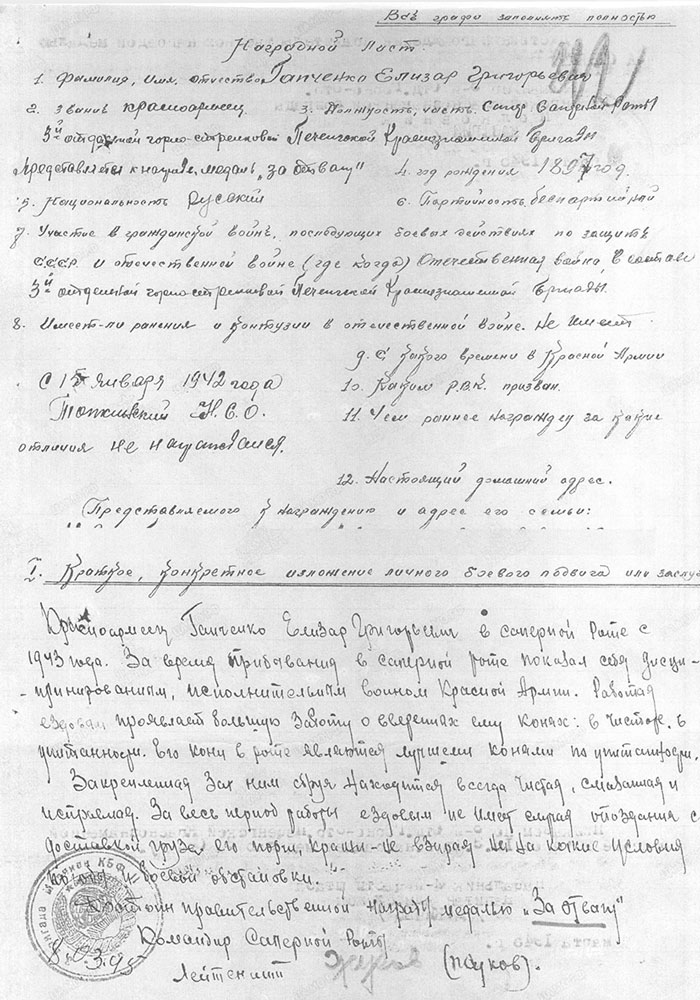 Все графы заполнять полностью
Наградной Лист
1. Фамилия, имя, отчество Гапченко Елизар Григорьевич
2. Звание красноармеец 3. Должность, часть Сапёр Саперной Роты
3й отдельной горно-стрелковой Печенгской Краснознаменной Бригады
Представляется к медаль „за отвагу"
4. год рождения 1897 год.
5. Национальность Русский
6. Партийность беспартийный
7. Участие в гражданской войне, последующих боевых действиях по защите
СССР и отечественной войне (где когда) Отечественная война в составе
3й отдельной горно-стрелковой Печенгской Краснознаменной Бригады.
8. Имеет-ли ранения и контузии в отечественной войне. Не имеет
9. С какого времени в Красной Армии
С 15 Января 1942 года
10. Каким Р.В.К. призван.
11. Чем раннее награжден за какие
отличия не награждался.
12. Настоящий домашний адрес.
(Представляемого к награждению и адрес его семьи:
I. Краткое, конкретное изложение личного боевого подвига или заслуг
Красноармеец Гапченко Елизар Григорьевич в саперной роте с
1943 года. За время прибывания в саперной роте показал себя дисци-
-плинированным, исполнительным воином Красной Армии. Работая
ездовым проявляет большую заботу о вверенных ему конях: в чистоте, в
упитанности. Его кони в роте являются лучшими конями по упитанности.
Закрепленная за ним сбруя находится всегда чистая, смазанная и
исправная. За весь период работы ездовым не имел опоздания с
доставкой груза не взирая не на какие условия
боевой обстановки.
Достоин правительственной награды медалью „За Отвагу"
Командир Саперной Роты
Лейтенант (Пауков).